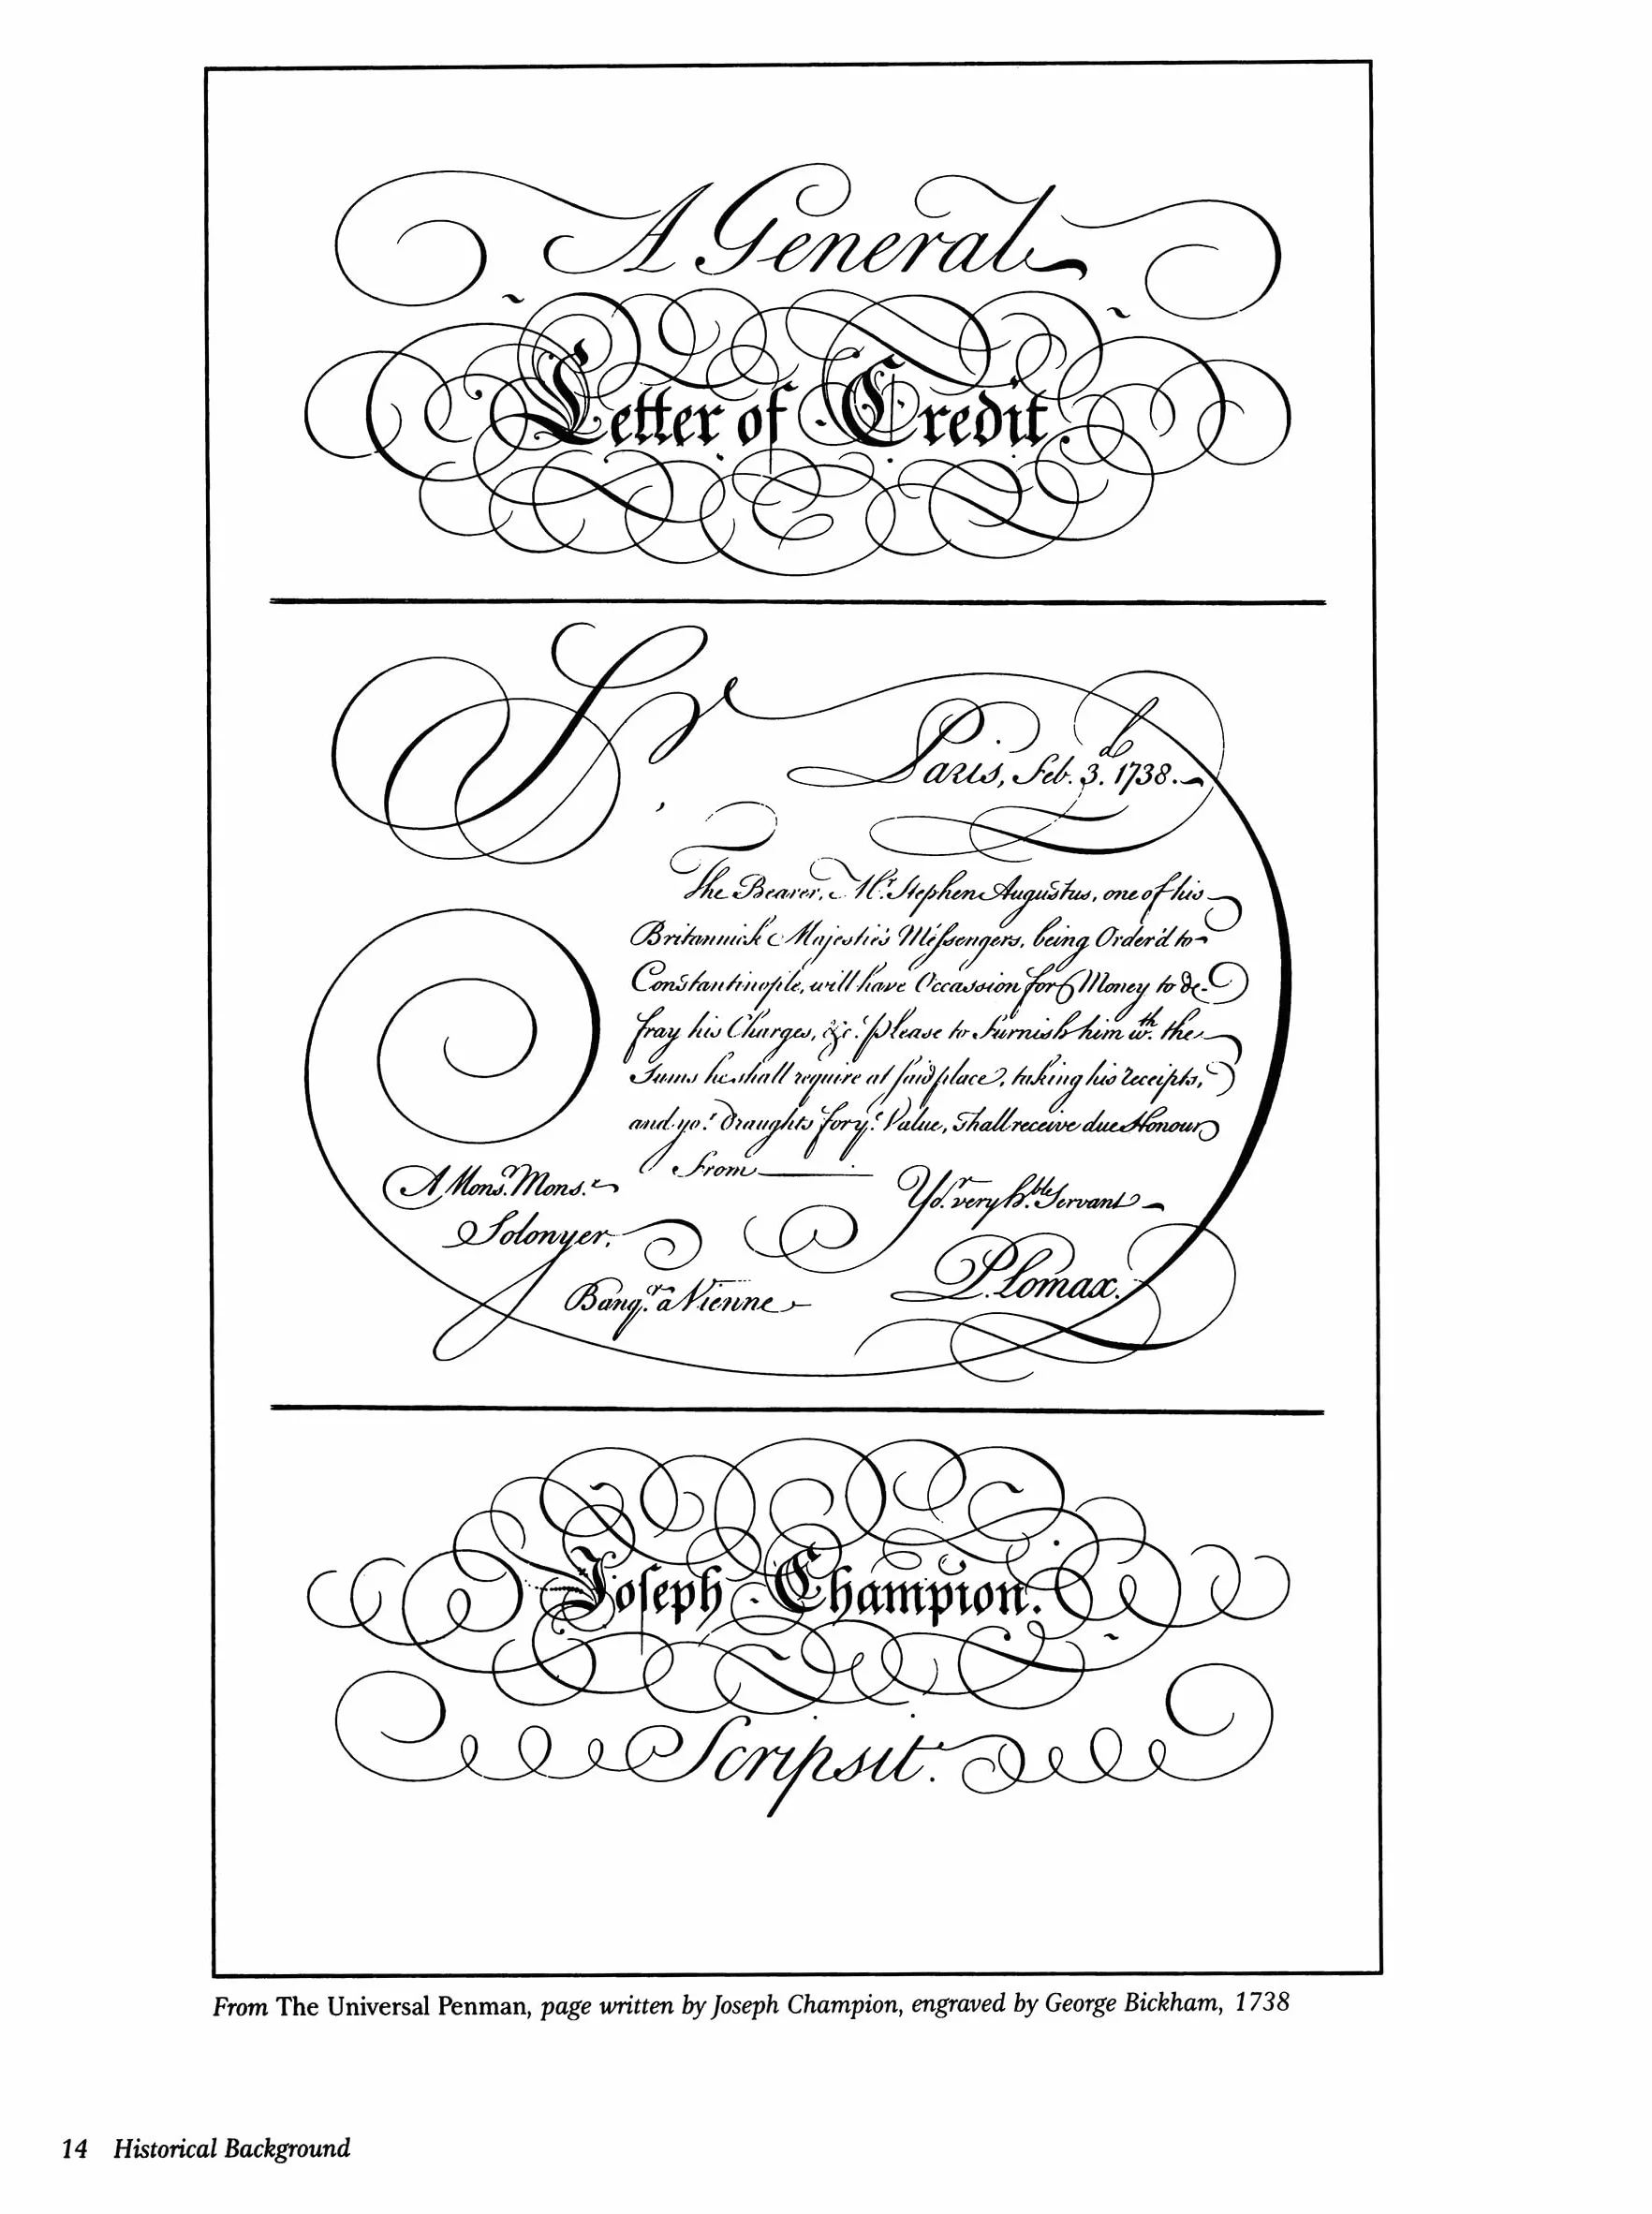 A General
Letter of Credit.
Sr
Paris, Feb. 3d. 1738.
The Bearer, Mr. Stephen Augustus, one of his
Britannick Majestie's Meſsengers, being Order'd to
Constantinople, will have Occassion for Money to de-
fray his Charges, &c. please to Furnish him wth. the
Sums he shall require at ſaid place, taking his receipts,
and yor. Draughts for ye. Value, Shall receive due Honour
From
A Monsr. Mons.r
Solonyer.
Banqr. a Vienne
Yor. very hble. Servant
P. Lomax.
Joſeph Champion.
Scripsit.
From The Universal Penman, page written by Joseph Champion, engraved by George Bickham, 1738
14 Historical Background